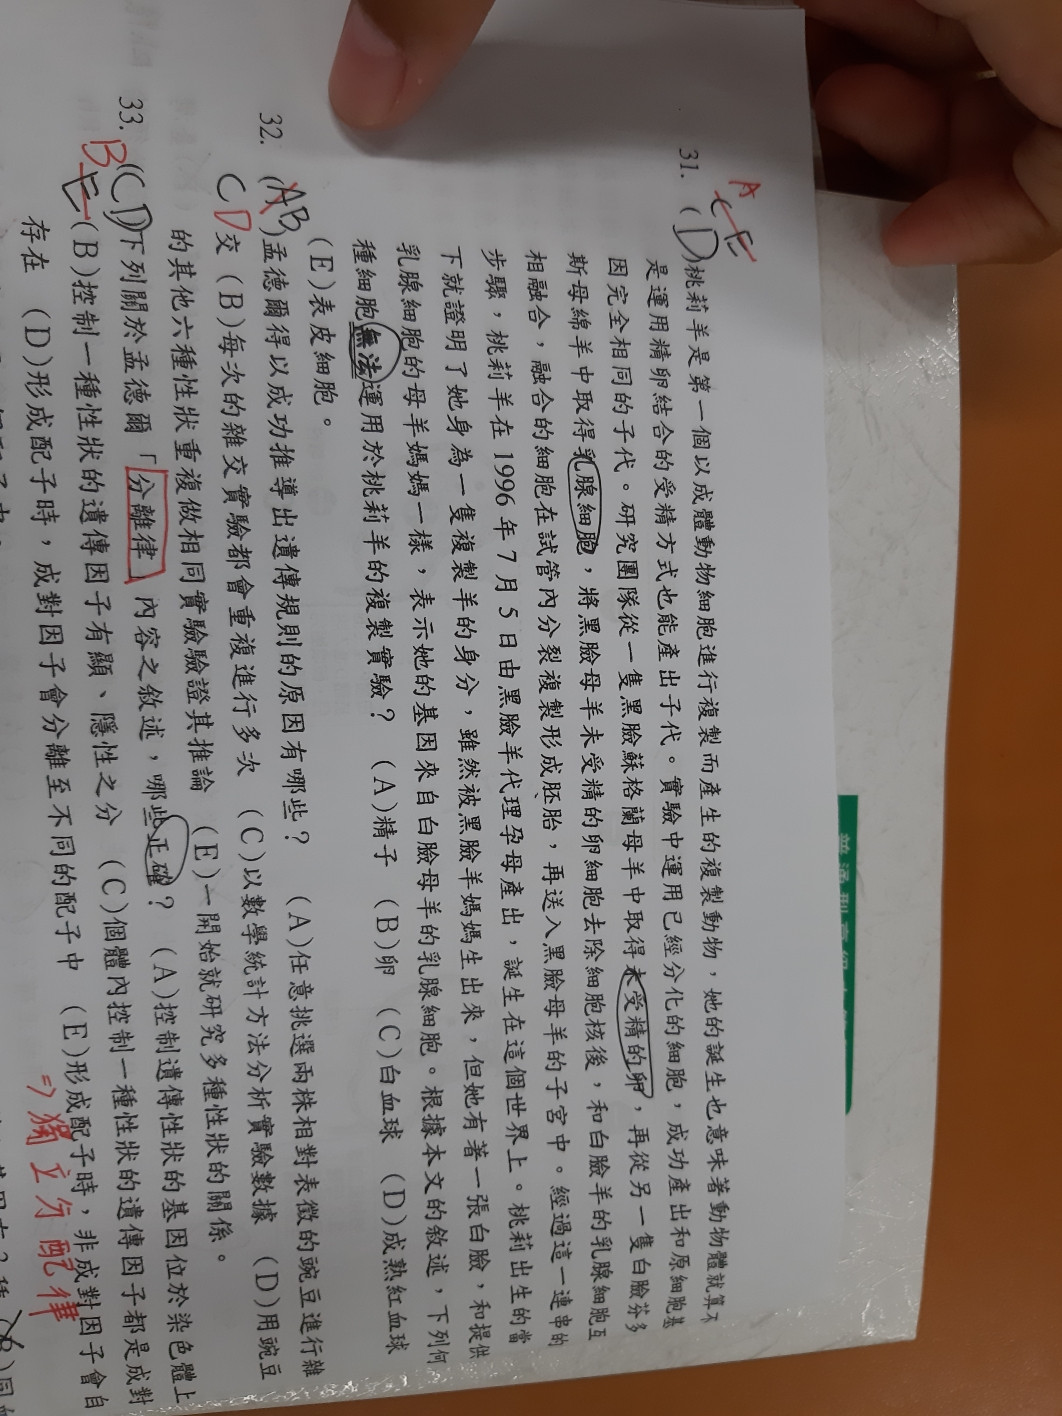 31. (D)桃莉羊是第一個以成體動物細胞進行複製而產生的複製動物，她的誕生也意味著動物體就算不
A
CE
是運用精卵結合的受精方式也能產出子代。實驗中運用已經分化的細胞，成功產出和原細胞基
因完全相同的子代。研究團隊從一隻黑臉蘇格蘭母羊中取得未受精的卵，再從另一隻白臉芬多
斯母綿羊中取得乳腺細胞，將黑臉母羊未受精的卵細胞去除細胞核後，和白臉羊的乳腺細胞互
相融合，融合的細胞在試管內分裂複製形成胚胎，再送入黑臉母羊的子宮中。經過這一連串的
步驟，桃莉羊在 1996 年 7 月 5 日由黑臉羊代理孕母產出，誕生在這個世界上。桃莉出生的當
下就證明了她身為一隻複製羊的身分，雖然被黑臉羊媽媽生出來，但她有著一張白臉，和提供
乳腺細胞的母羊媽媽一樣，表示她的基因來自白臉母羊的乳腺細胞。根據本文的敘述，下列何
種細胞無法運用於桃莉羊的複製實驗？ (A)精子 (B)卵 (C)白血球 (D)成熟紅血球
(E)表皮細胞。
32. (AB)孟德爾得以成功推導出遺傳規則的原因有哪些？ (A)任意挑選兩株相對表徵的豌豆進行雜
CD
交 (B)每次的雜交實驗都會重複進行多次 (C)以數學統計方法分析實驗數據 (D)用豌豆
的其他六種性狀重複做相同實驗驗證其推論 (E)一開始就研究多種性狀的關係。
33. (CD)下列關於孟德爾「分離律」內容之敘述，哪些正確？ (A)控制遺傳性狀的基因位於染色體上
B
E
(B)控制一種性狀的遺傳因子有顯、隱性之分 (C)個體內控制一種性狀的遺傳因子都是成對
存在 (D)形成配子時，成對因子會分離至不同的配子中 (E)形成配子時，非成對因子會自
⇒獨立分配律
普通型高級